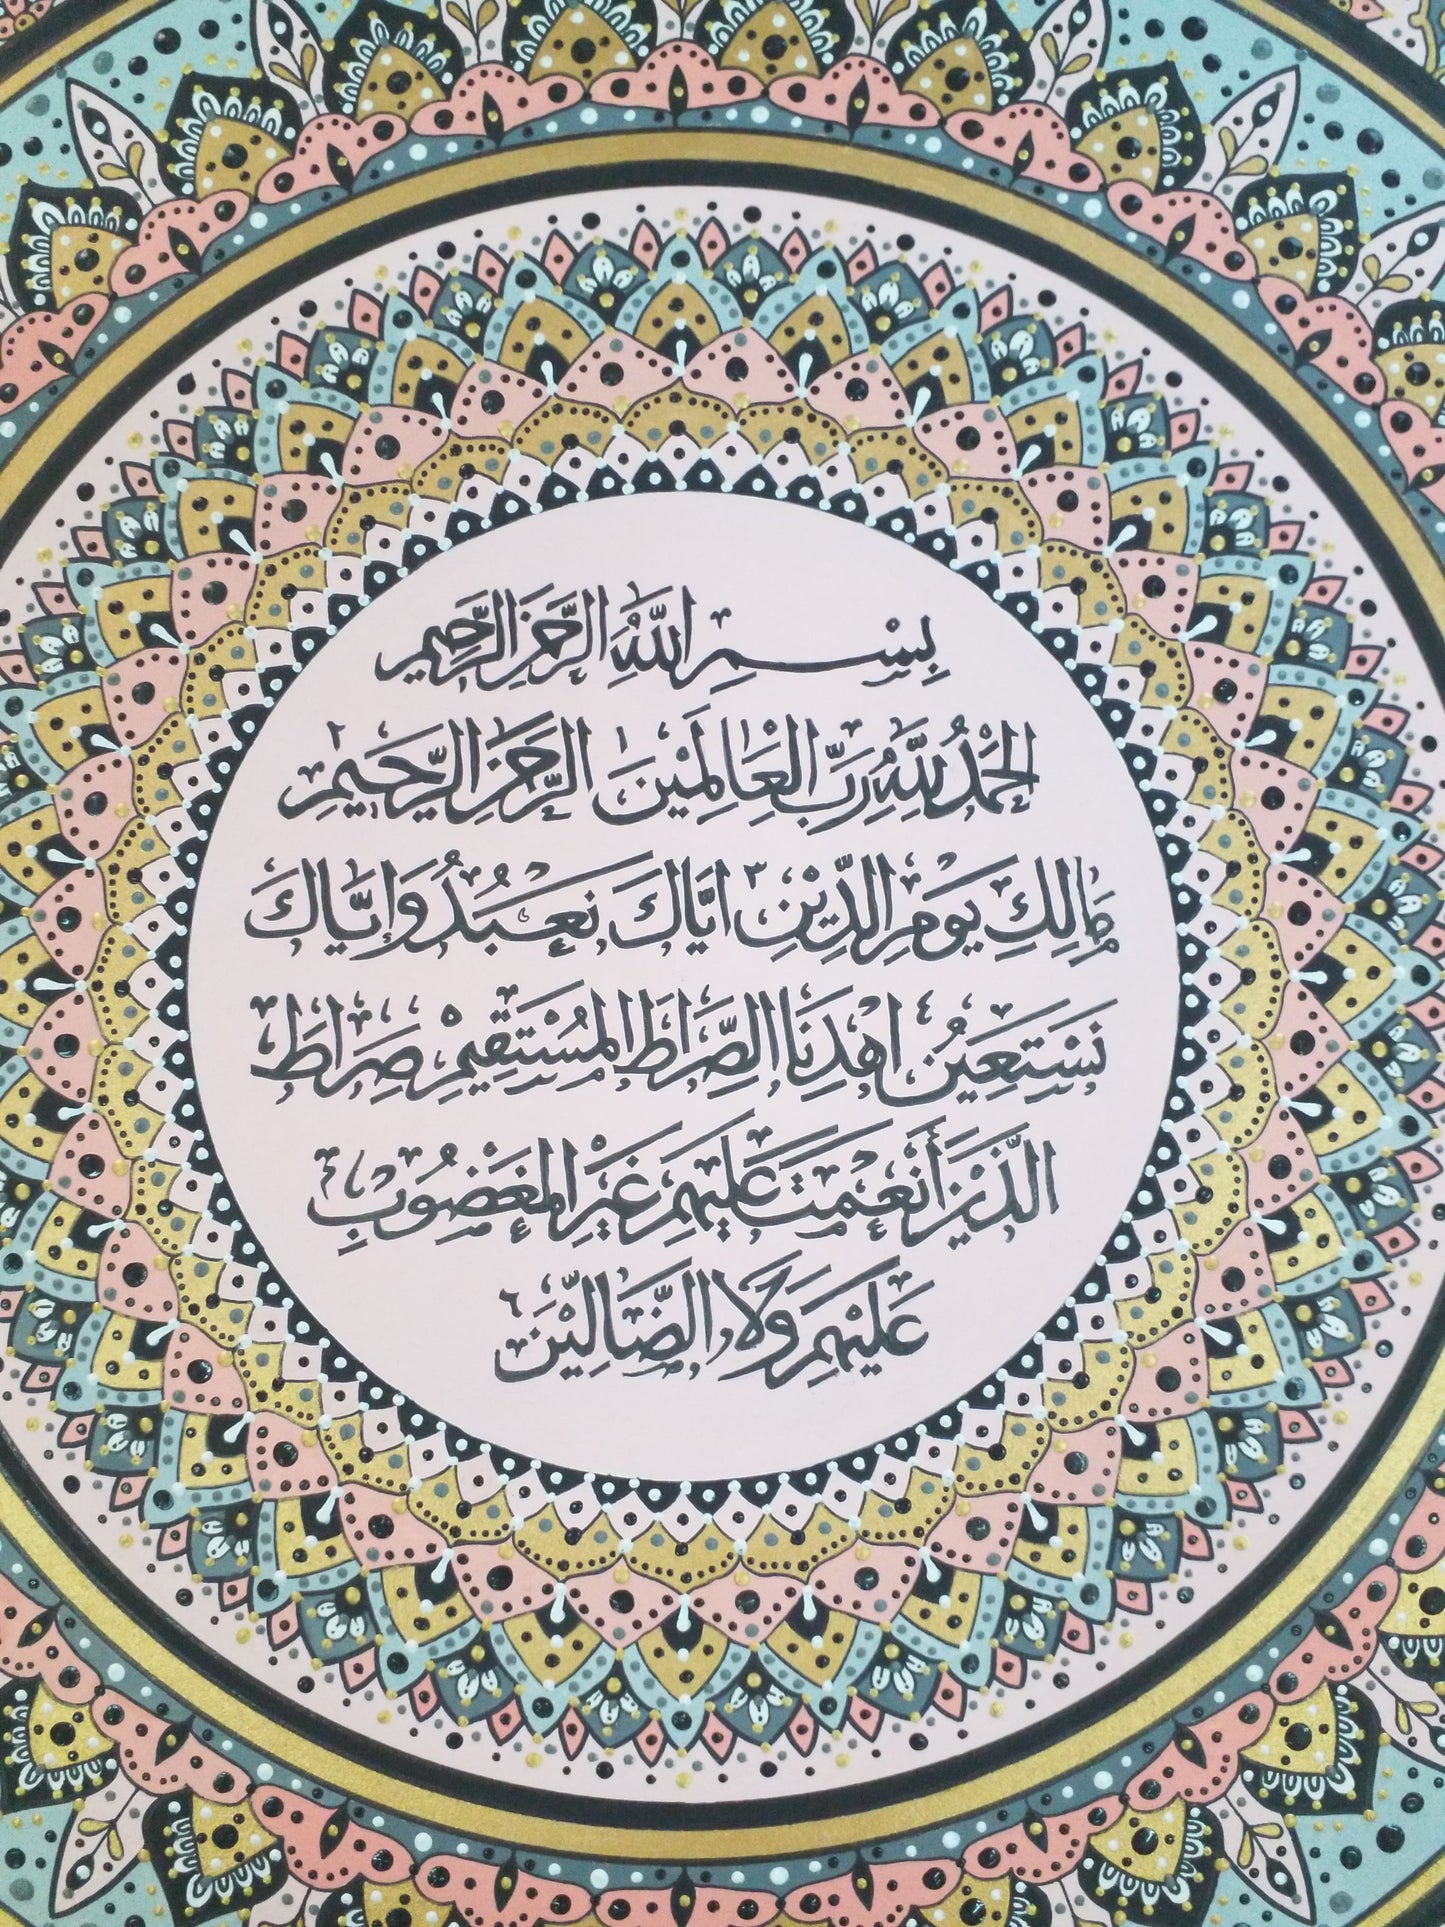 بِسْمِ اللَّهِ الرَّحْمَنِ الرَّحِيمِ
الْحَمْدُ لِلَّهِ رَبِّ الْعَالَمِينَ ١ الرَّحْمَنِ الرَّحِيمِ ٢
مَالِكِ يَوْمِ الدِّينِ ٣ ايَّاكَ نَعْبُدُ وَإِيَّاكَ
نَسْتَعِينُ ٤ اهْدِنَا الصِّرَاطَ الْمُسْتَقِيمَ صِرَاطَ
الَّذِينَ أَنْعَمْتَ عَلَيْهِمْ غَيْرِ الْمَغْضُوبِ
عَلَيْهِمْ وَلَا الضَّالِّينَ ٦